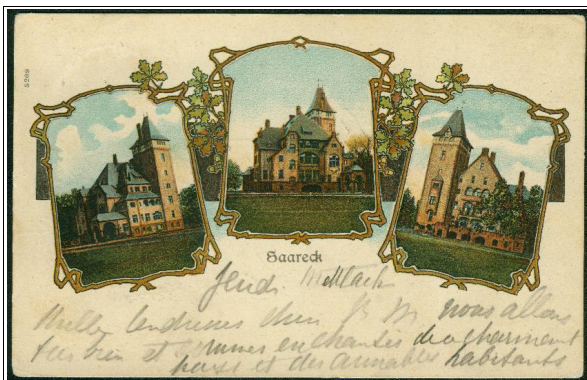 5269
Saareck
Jeudi Mettlach
Mille tendresses nous allons
très bien et sommes enchantés de ce charmant
pays et des aimables habitants